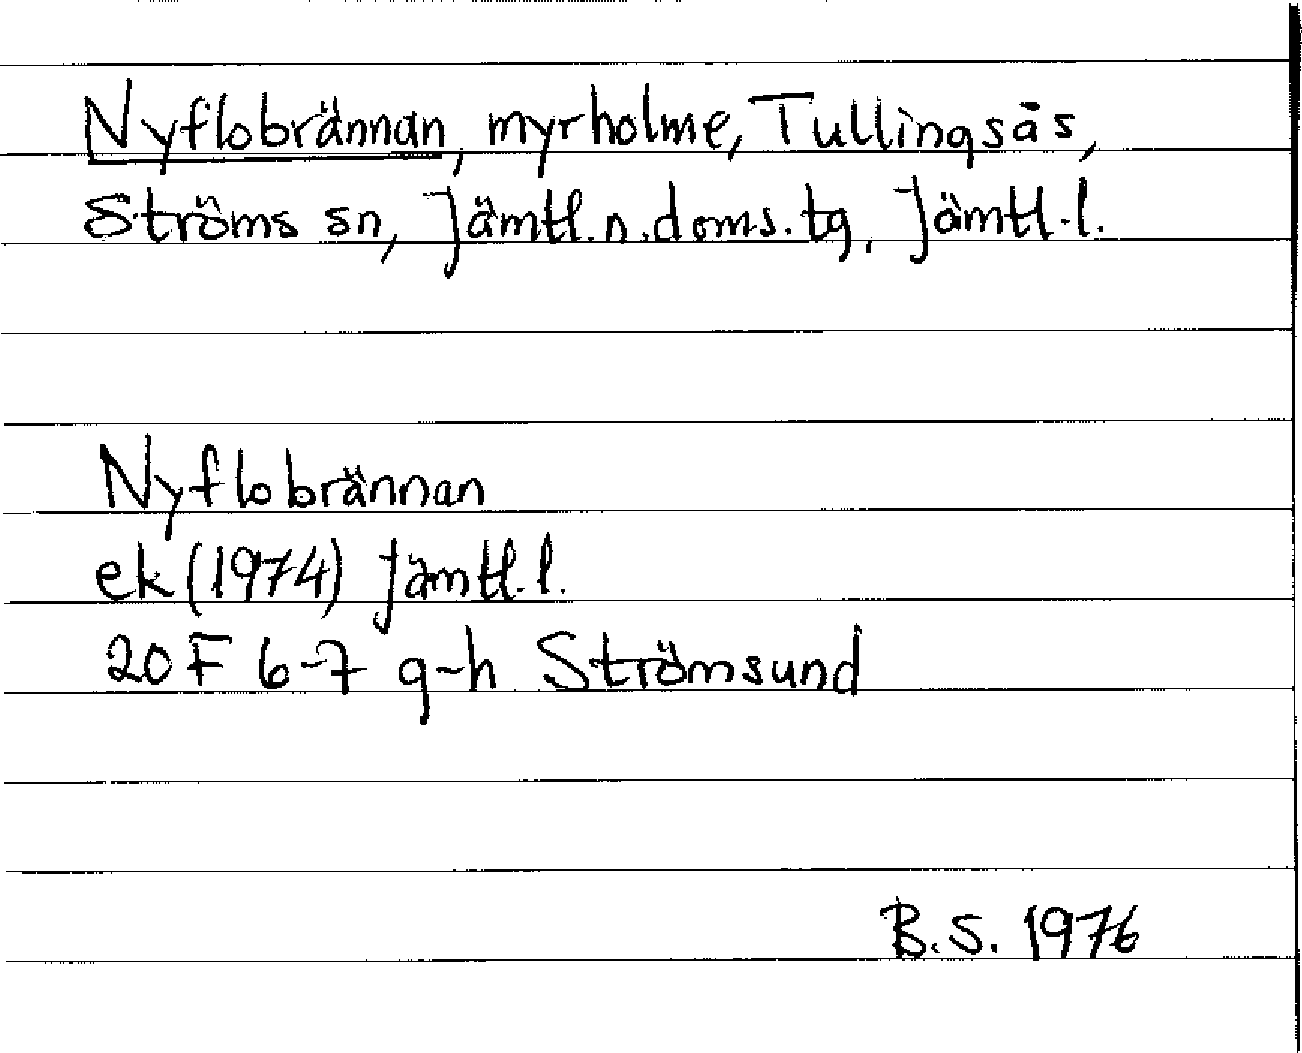 Nyflobrännan, myrholme, Tullingsås,
Ströms sn, Jämtl.n.doms.tg, Jämtl.l.
Nyflobrännan
ek (1974) Jämtl.l.
20 F 6-7 g-h Strömsund
B.S. 1976